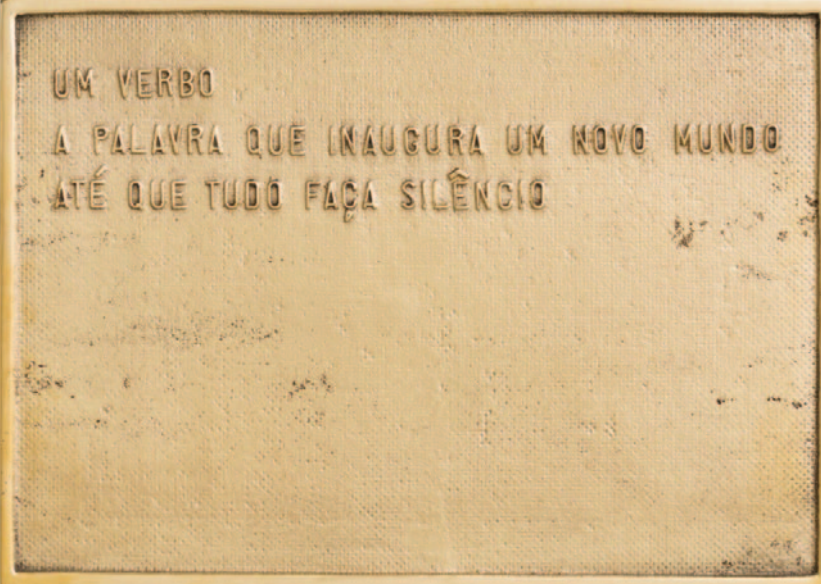 UM VERBO
A PALAVRA QUE INAUGURA UM NOVO MUNDO
ATÉ QUE TUDO FAÇA SILÊNCIO